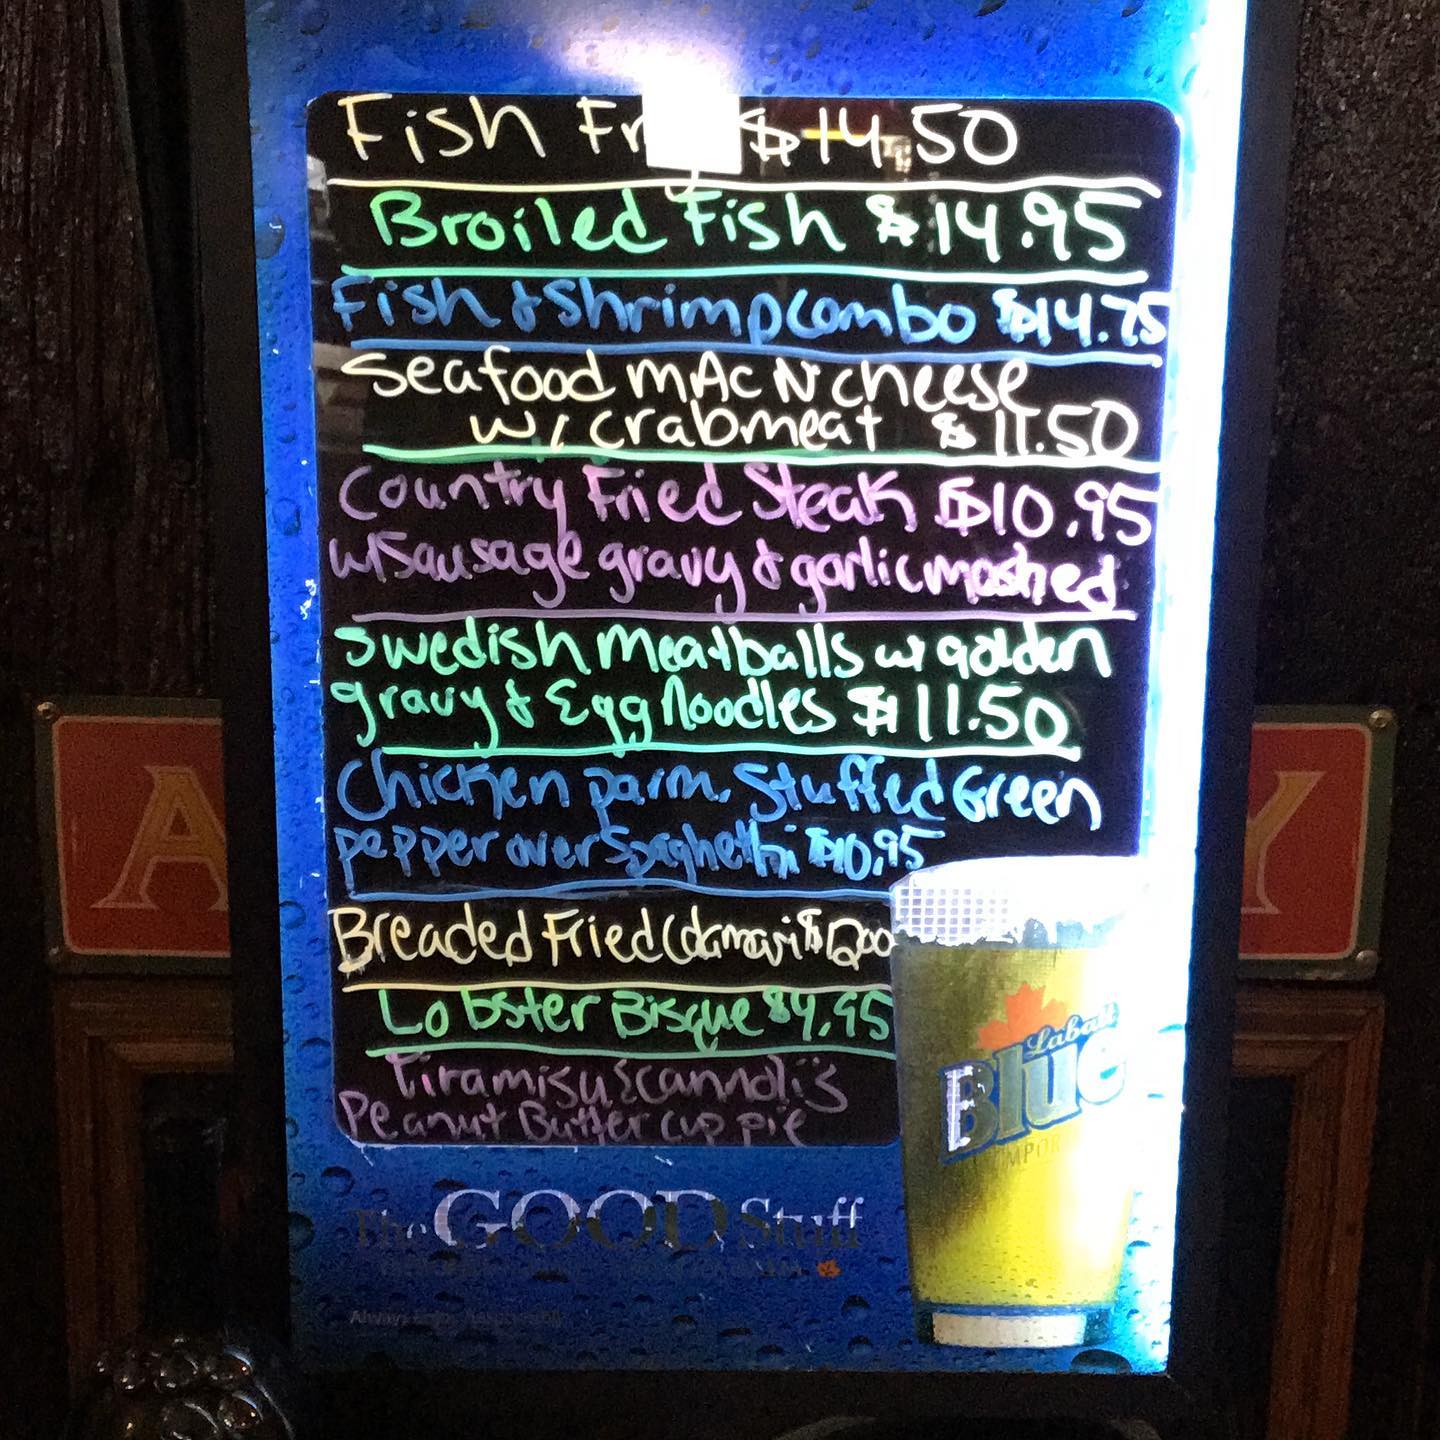 Fish Fry $14.50
Broiled Fish $14.95
Fish & Shrimp combo $14.75
Seafood MAC N cheese
w/ crabmeat $11.50
Country Fried Steak $10.95
w/Sausage gravy & garlic mashed
Swedish Meatballs w/ golden
gravy & Egg Noodles $11.50
Chicken parm. Stuffed Green
pepper over Spaghetti $10.95
Breaded Fried Calamari $12.00
Lobster Bisque $4.95
Tiramisu & cannoli's
Peanut Butter cup pie
A
Y
Labatt
Blue
The GOOD Stuff
Always